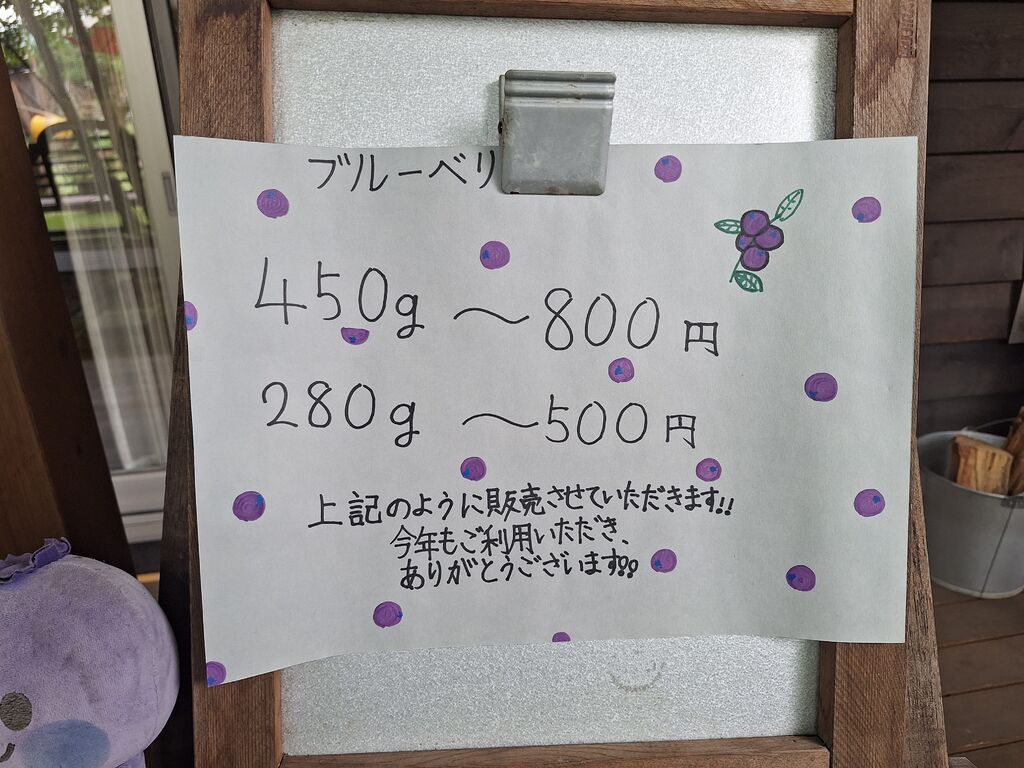 ブルーベリ
450g 〜800円
280g 〜500円
上記のように販売させていただきます!!
今年もご利用いただき、
ありがとうございます!!